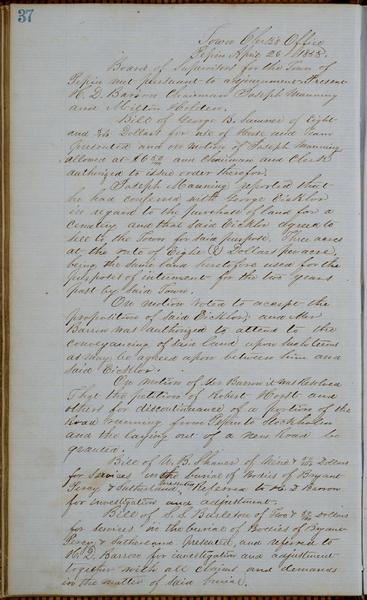 37
Town Clerks Office
Pepin April 26 1858.
Board of Supervisors for the Town of
Pepin met pursuant to adjournment. Present
H. D. Barron Chairman Joseph Manning
and Milton Holden.
Bill of George B. Sumner of Eight
and Dollars for use of House and Team
presented and on motion of Joseph Manning
allowed at $6 50 and Chairman and Clerk
authorized to issue order therefor.
Joseph Manning reported that
he had conferred with George
in regard to the purchase of land for a
cemetery and that said agreed to
sell to the Town for said purpose. Three acres
at the rate of Eight (8) Dollars per acre,
being the same land heretofore used for the
purposes of interment for the two years
past by said Town.
On motion voted to accept the
proposition of said and Mr
Barron was authorized to attend to the
conveyancing of said land upon such terms
as may be agreed upon between him and
said
On motion of Mr Barron it was Resolved
That the petition of Robert and
others for discontinuance of a portion of the
Road running from Pepin to Stockholm
and the laying out of a new Road be
granted.
Bill of W. B. of Nine & Dollars
for services in the burial of Bodies of Bryant
Percy & Sutherland presented. Referred to H. D Barron
for investigation and adjustment.
Bill of S. S. Burleton of Two & Dollars
for services in the burial of Bodies of Bryant
Percy & Sutherland presented, and referred to
H. D. Barron for investigation and adjustment
together with all claims and demands
in the matter of said burial.